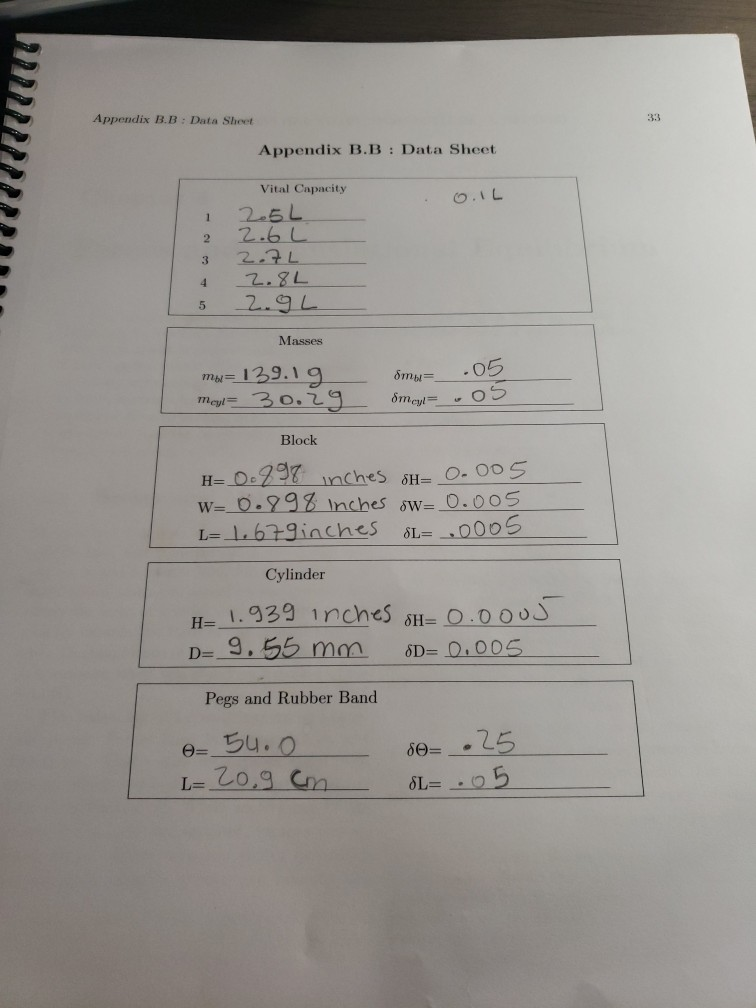 Appendix B.B : Data Sheet 33
Appendix B.B : Data Sheet
Vital Capacity 0.1L
1 2.5L
2 2.6L
3 2.7L
4 2.8L
5 2.9L
Masses
m_bl= 139.1g δm_bl= .05
m_cyl= 30.2g δm_cyl= .05
Block
H= 0.898 inches δH= 0.005
W= 0.898 inches δW= 0.005
L= 1.679inches δL= .0005
Cylinder
H= 1.939 inches δH= 0.0005
D= 9.55 mm δD= 0.005
Pegs and Rubber Band
Θ= 54.0 δΘ= .25
L= 20.9 cm δL= .05